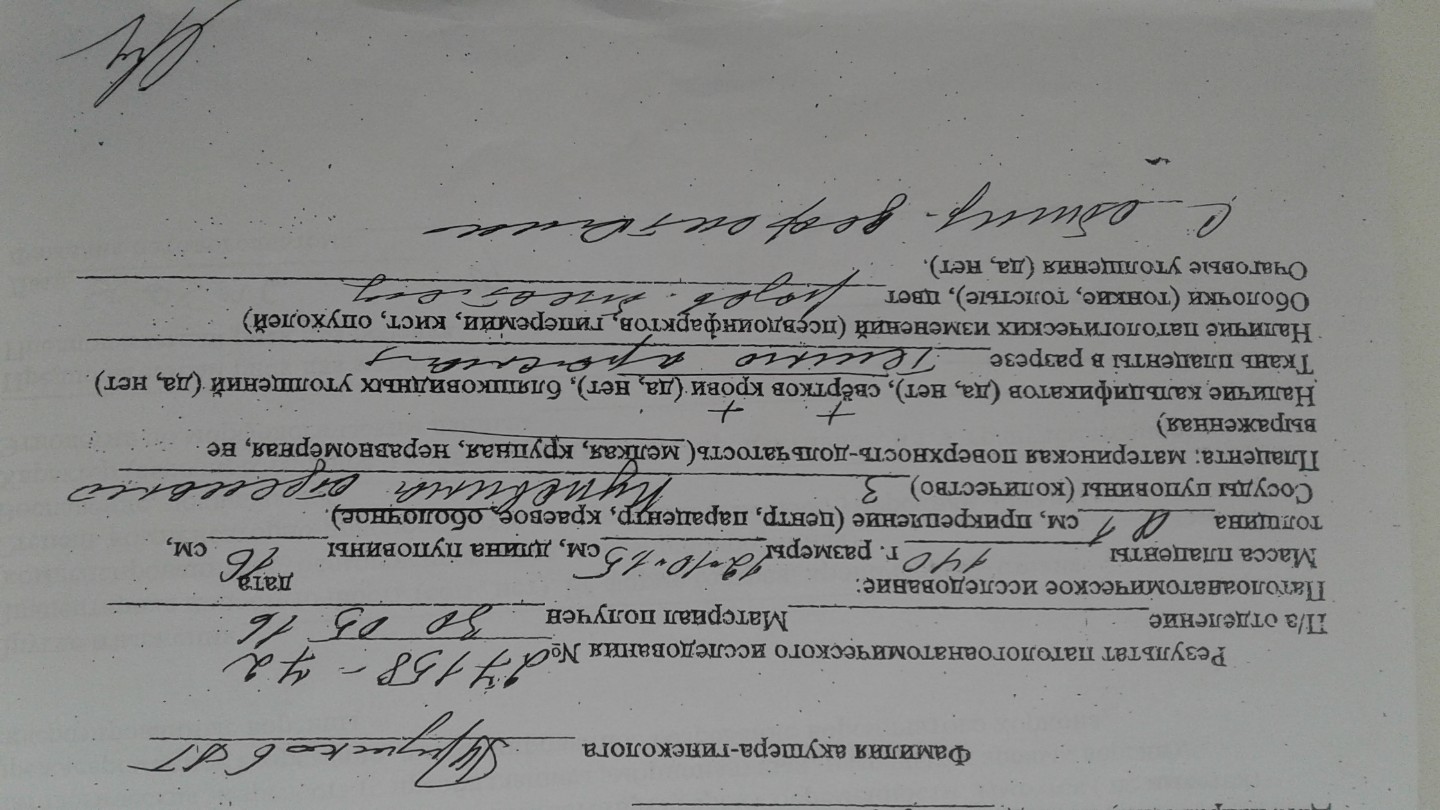 Фамилия акушера-гинеколога
Результат патологоанатомического исследования № 27158 - 72
П/а отделение Материал получен 30 05 16
дата
Патолоанатомическое исследование:
Масса плаценты 140 г. размеры 12×10×1.5 см, длина пуповины 16 см,
толщина 1 см, прикрепление (центр, парацентр, краевое, оболочное).
Сосуды пуповины (количество) 3 Пуповина отдельно
Плацента: материнская поверхность-дольчатость( мелкая, крупная, неравномерная, не
выраженная)
+ +
Наличие кальцификатов (да, нет), свёртков крови (да, нет), бляшковидных утолщений (да, нет)
Ткань плаценты в разрезе Темно красная
Наличие патологических изменений (псевдоинфарктов, гиперемии, кист, опухолей)
Оболочки (тонкие, толстые), цвет
Очаговые утолщения (да, нет).
С обшир. дефектами